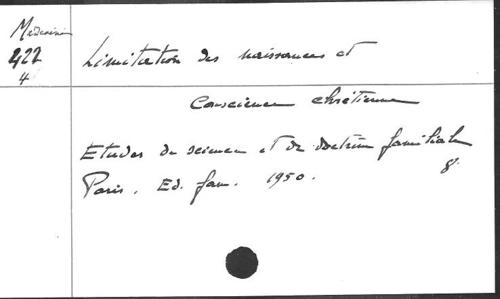 Médecine
422
4
Limitation des naissances et
Conscience chrétienne
Etudes de science et de doctrine familiale
8°
Paris. Ed. fam. 1950.